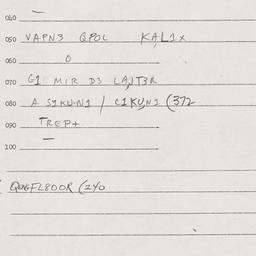 060 —
050 VAPN3 QPOL KAL1X
060 O
070 G1 MIR D3 LAJT3R
080 A S1KUN1 / C1KUN1 (372
090 TREP+
100 —
(240